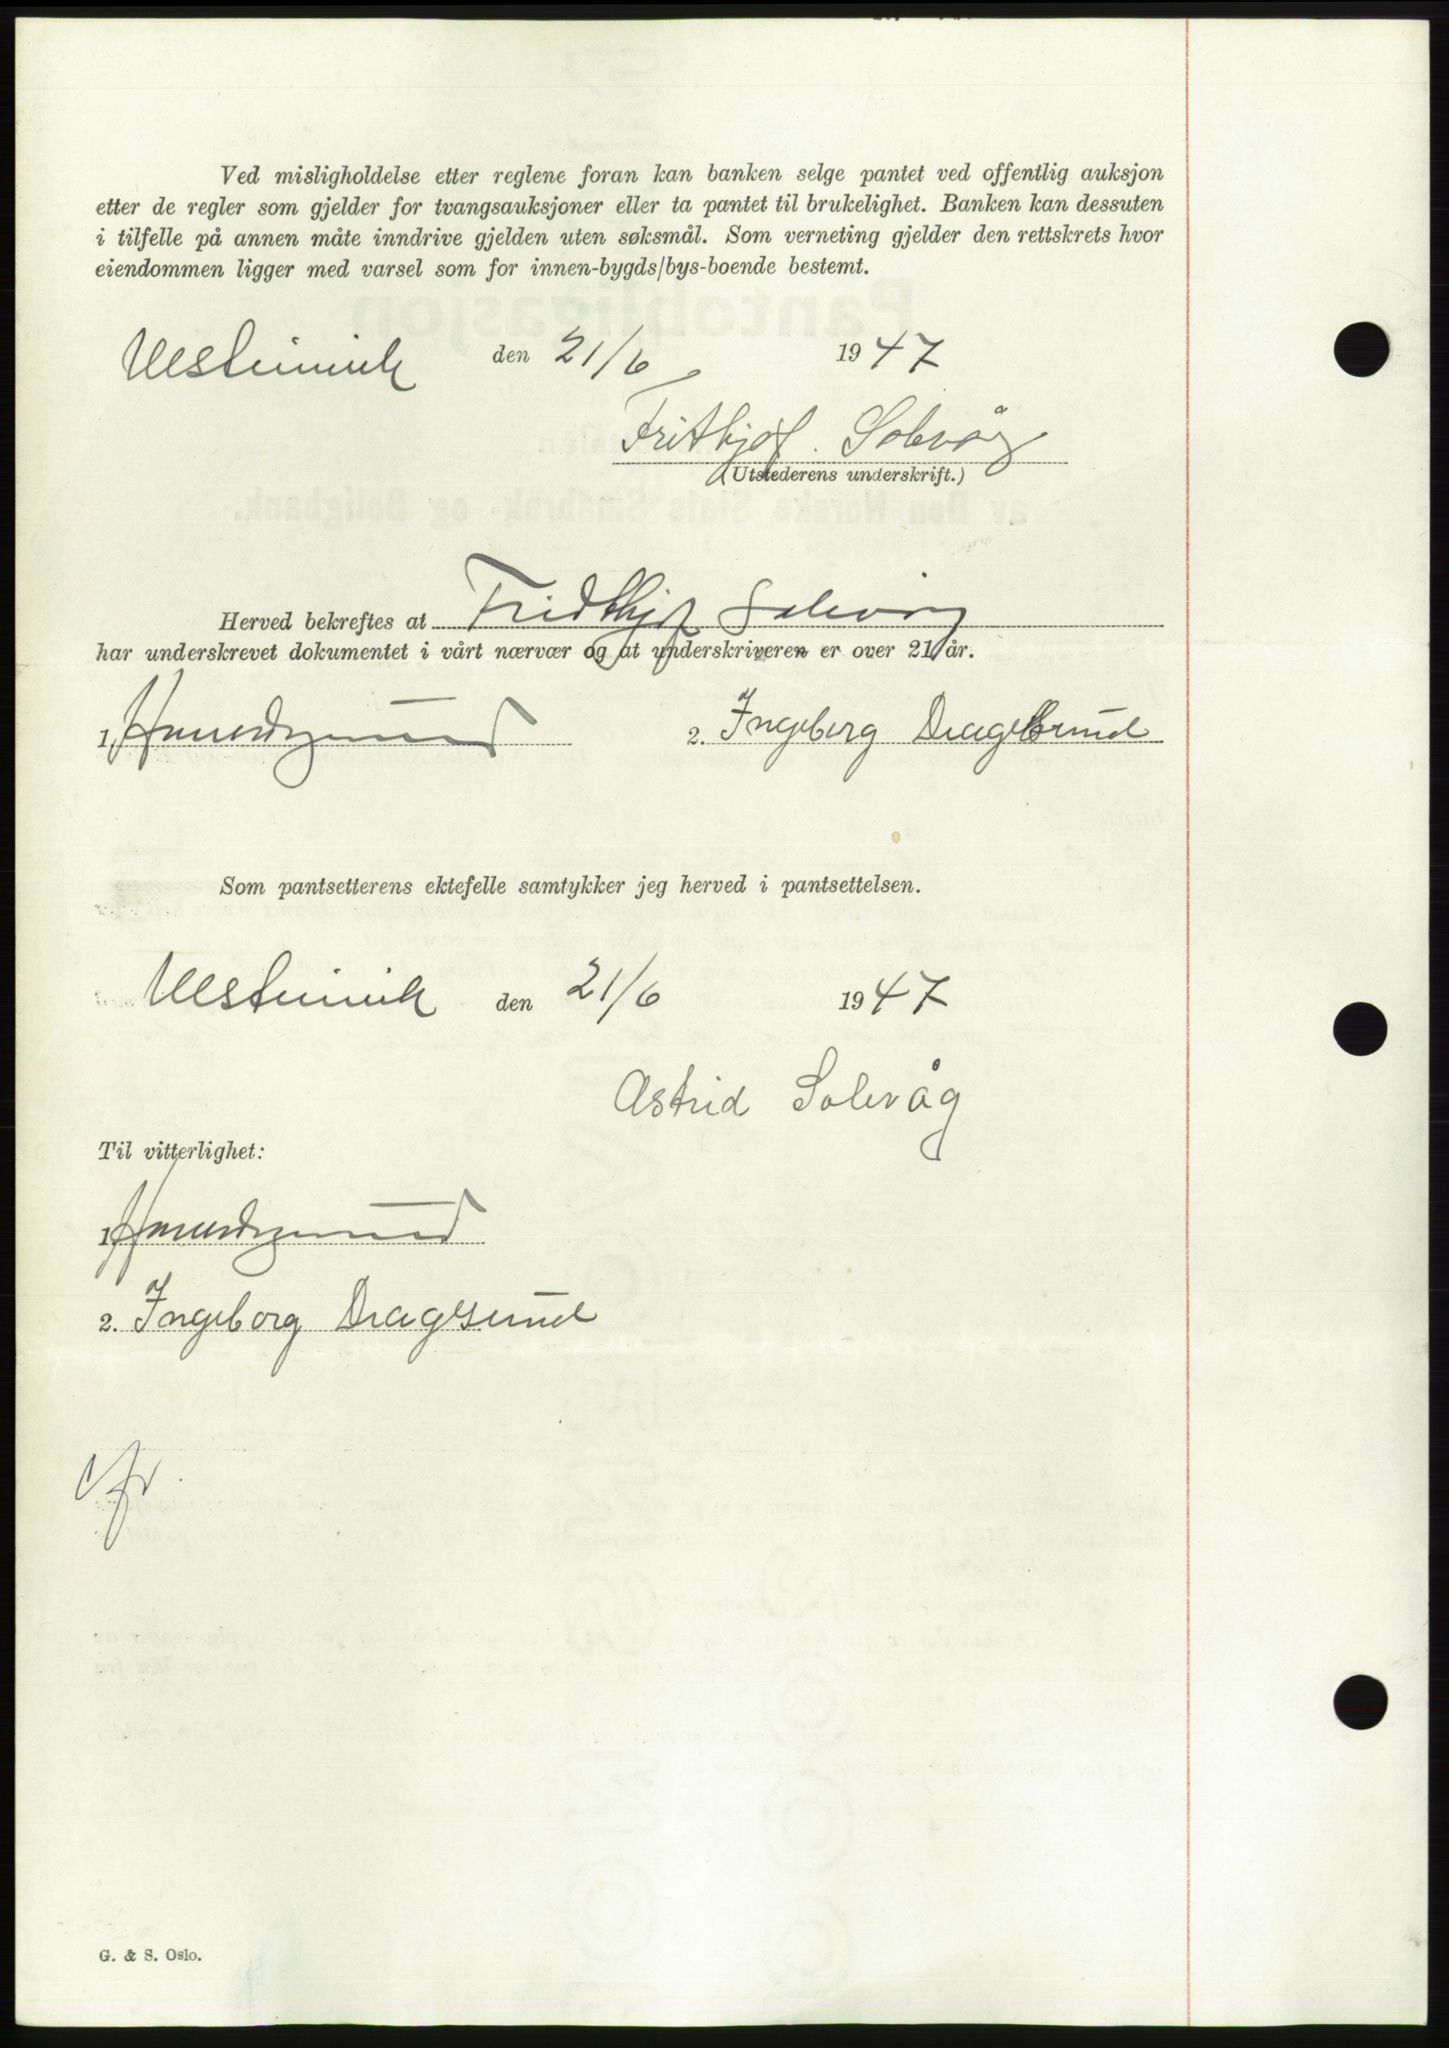 Ved misligholdelse etter reglene foran kan banken selge pantet ved offentlig auksjon
etter de regler som gjelder for tvangsauksjoner eller ta pantet til brukelighet. Banken kan dessuten
i tilfelle på annen måte inndrive gjelden uten søksmål. Som verneting gjelder den rettskrets hvor
eiendommen ligger med varsel som for innen-bygds/bys-boende bestemt.
den 21/6 1947
Frithjof Solevåg
(Utstederens underskrift.)
Herved bekreftes at Fridthjof Solevåg
har underskrevet dokumentet i vårt nærvær og at underskriveren er over 21 år.
1. 2. Ingeborg Dragesund
Som pantsetterens ektefelle samtykker jeg herved i pantsettelsen.
den 21/6 1947
Astrid Solevåg
Til vitterlighet:
1.
2. Ingeborg Dragesund
G. & S. Oslo.